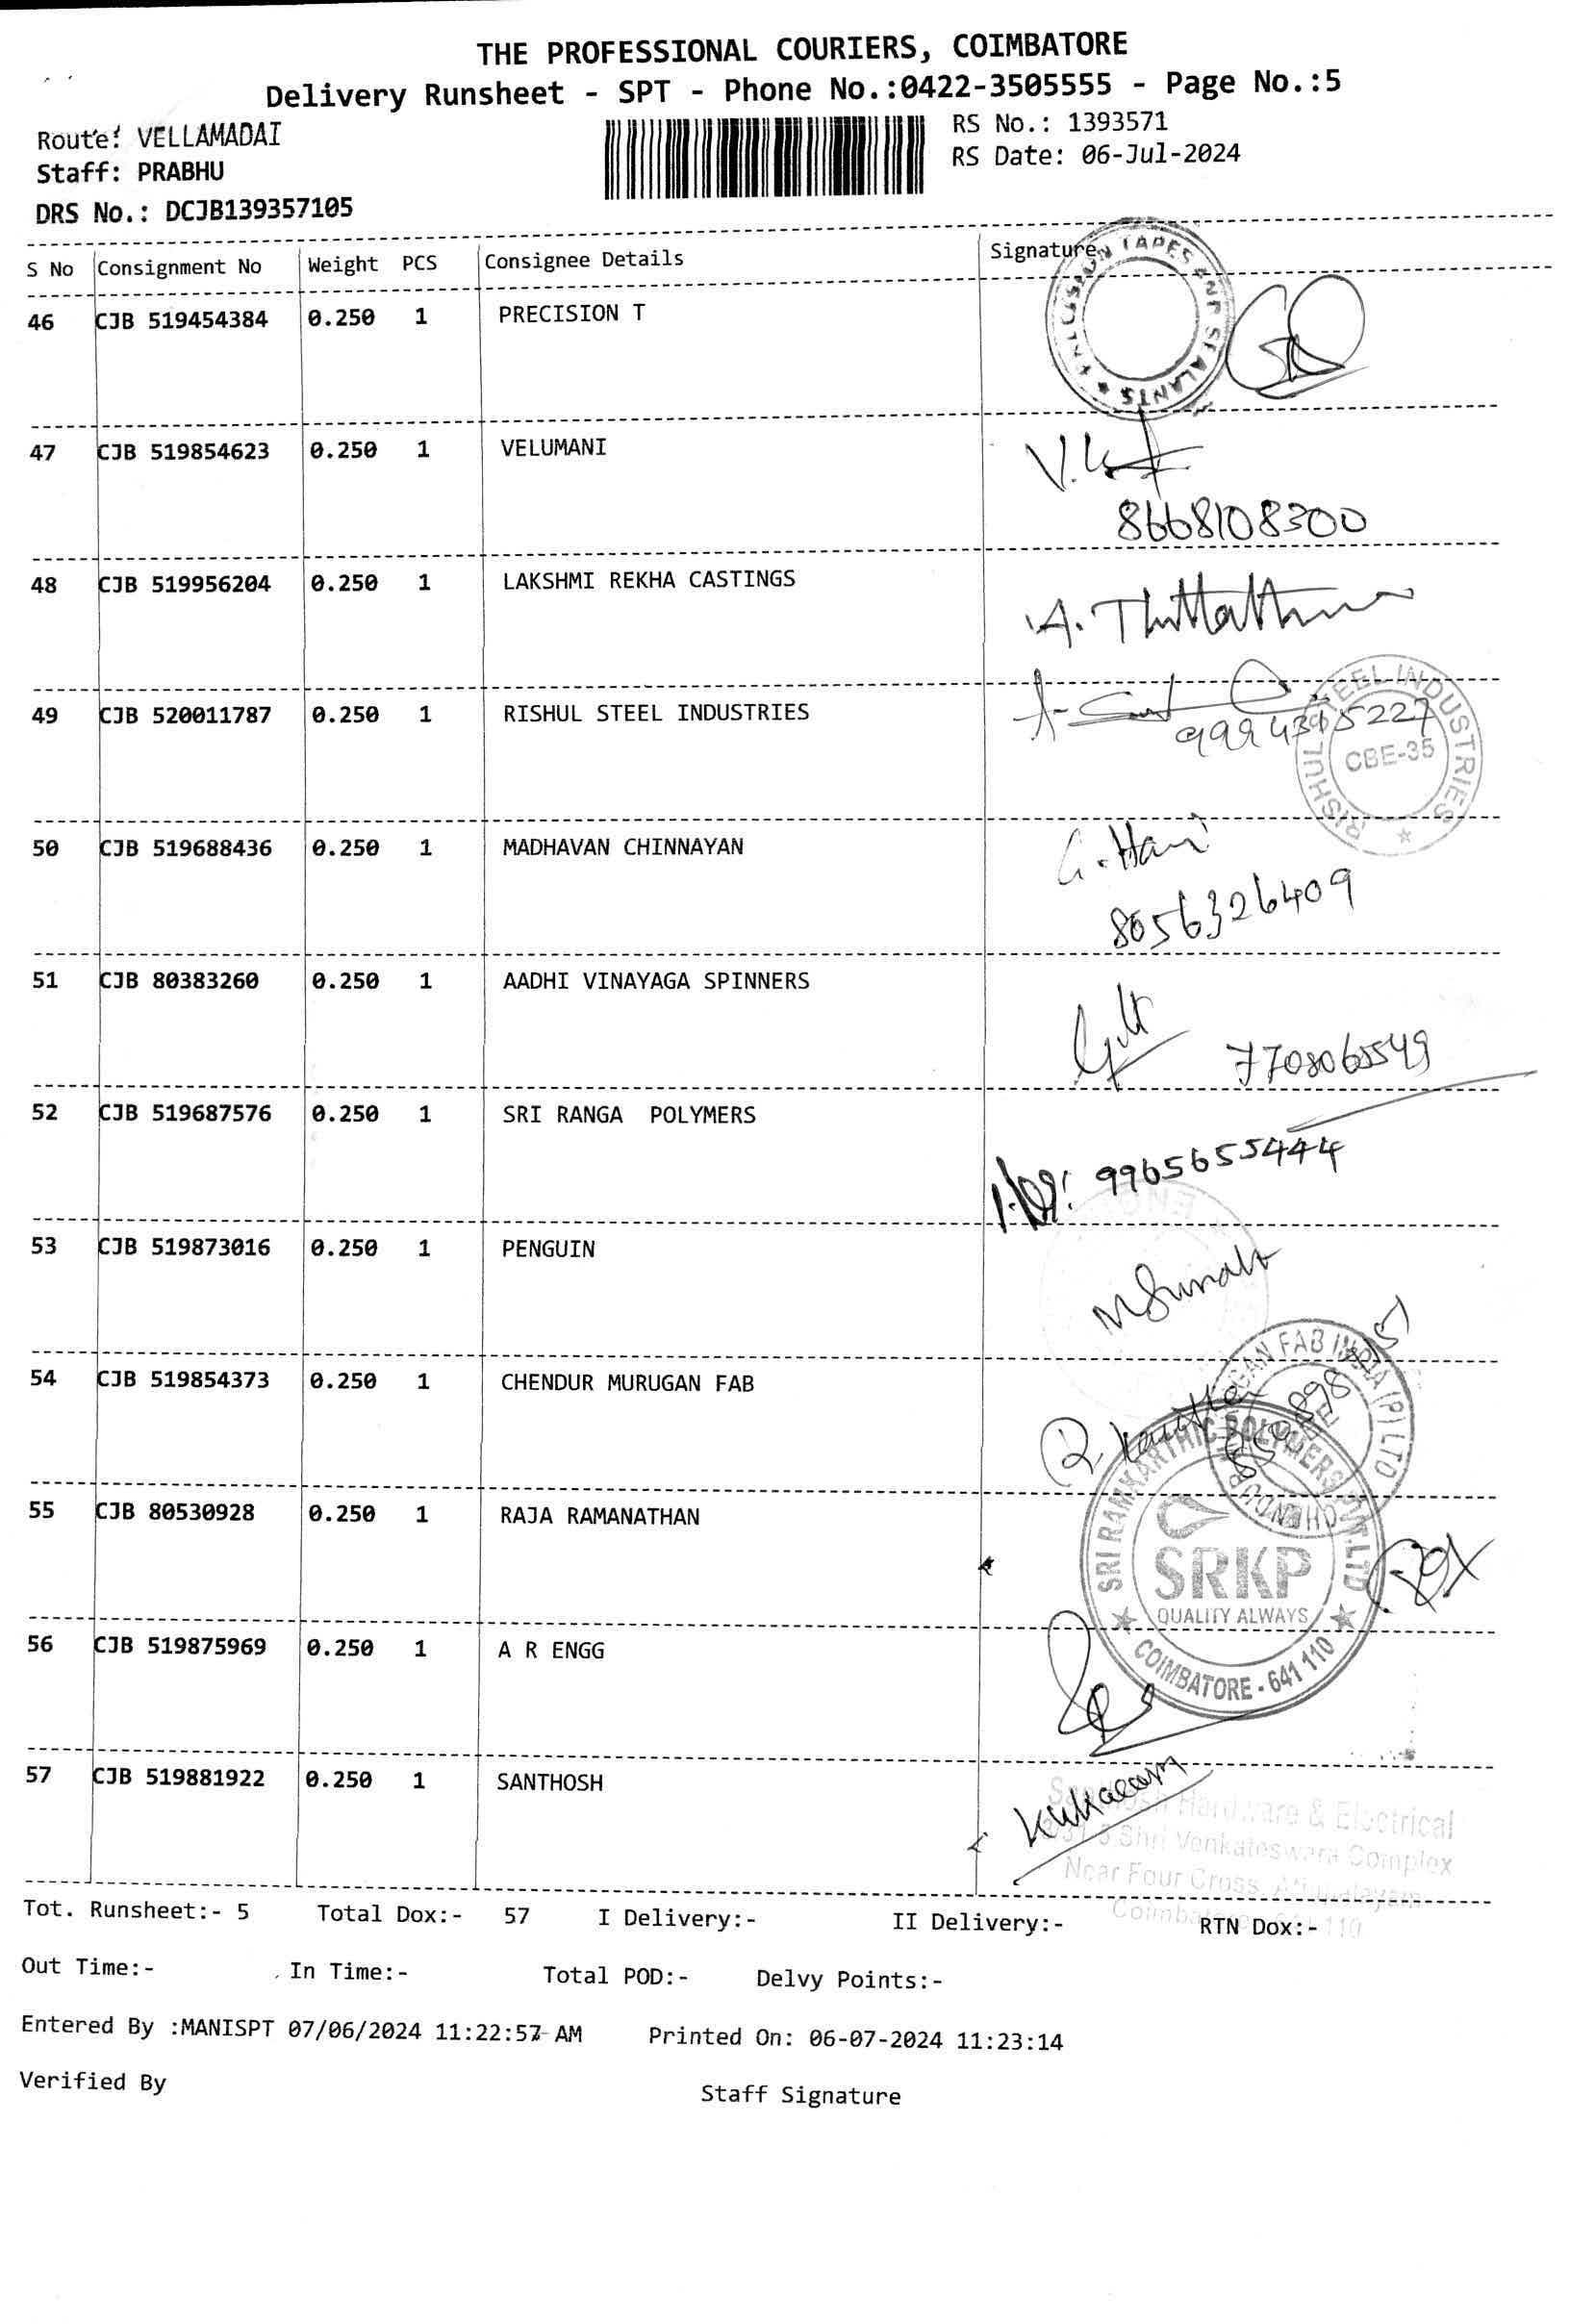 THE PROFESSIONAL COURIERS, COIMBATORE
Delivery Runsheet - SPT - Phone No.:0422-3505555 - Page No.:5
Route: VELLAMADAI
RS No.: 1393571
Staff: PRABHU
RS Date: 06-Jul-2024
DRS No.: DCJB139357105
S No Consignment No Weight PCS Consignee Details Signature
46 CJB 519454384 0.250 1 PRECISION T
TAPES AND SEALANTS
47 CJB 519854623 0.250 1 VELUMANI
8668108300
48 CJB 519956204 0.250 1 LAKSHMI REKHA CASTINGS
49 CJB 520011787 0.250 1 RISHUL STEEL INDUSTRIES
RISHUL STEEL INDUSTRIES
CBE-35
50 CJB 519688436 0.250 1 MADHAVAN CHINNAYAN
G. Hari
8056326409
51 CJB 80383260 0.250 1 AADHI VINAYAGA SPINNERS
52 CJB 519687576 0.250 1 SRI RANGA POLYMERS
9965655444
53 CJB 519873016 0.250 1 PENGUIN
54 CJB 519854373 0.250 1 CHENDUR MURUGAN FAB
CHENDUR MURUGAN FAB INDIA (P) LTD
55 CJB 80530928 0.250 1 RAJA RAMANATHAN
SRI RAMKARTHIC POLYMERS PVT.LTD
SRKP
QUALITY ALWAYS
COIMBATORE - 641 110
56 CJB 519875969 0.250 1 A R ENGG
57 CJB 519881922 0.250 1 SANTHOSH
Santhosh Hardware & Electrical
Shri Venkateswara Complex
Near Four Cross,
Tot. Runsheet:- 5 Total Dox:- 57 I Delivery:- II Delivery:- RTN Dox:-
Out Time:- In Time:- Total POD:- Delvy Points:-
Entered By :MANISPT 07/06/2024 11:22:57 AM Printed On: 06-07-2024 11:23:14
Verified By
Staff Signature